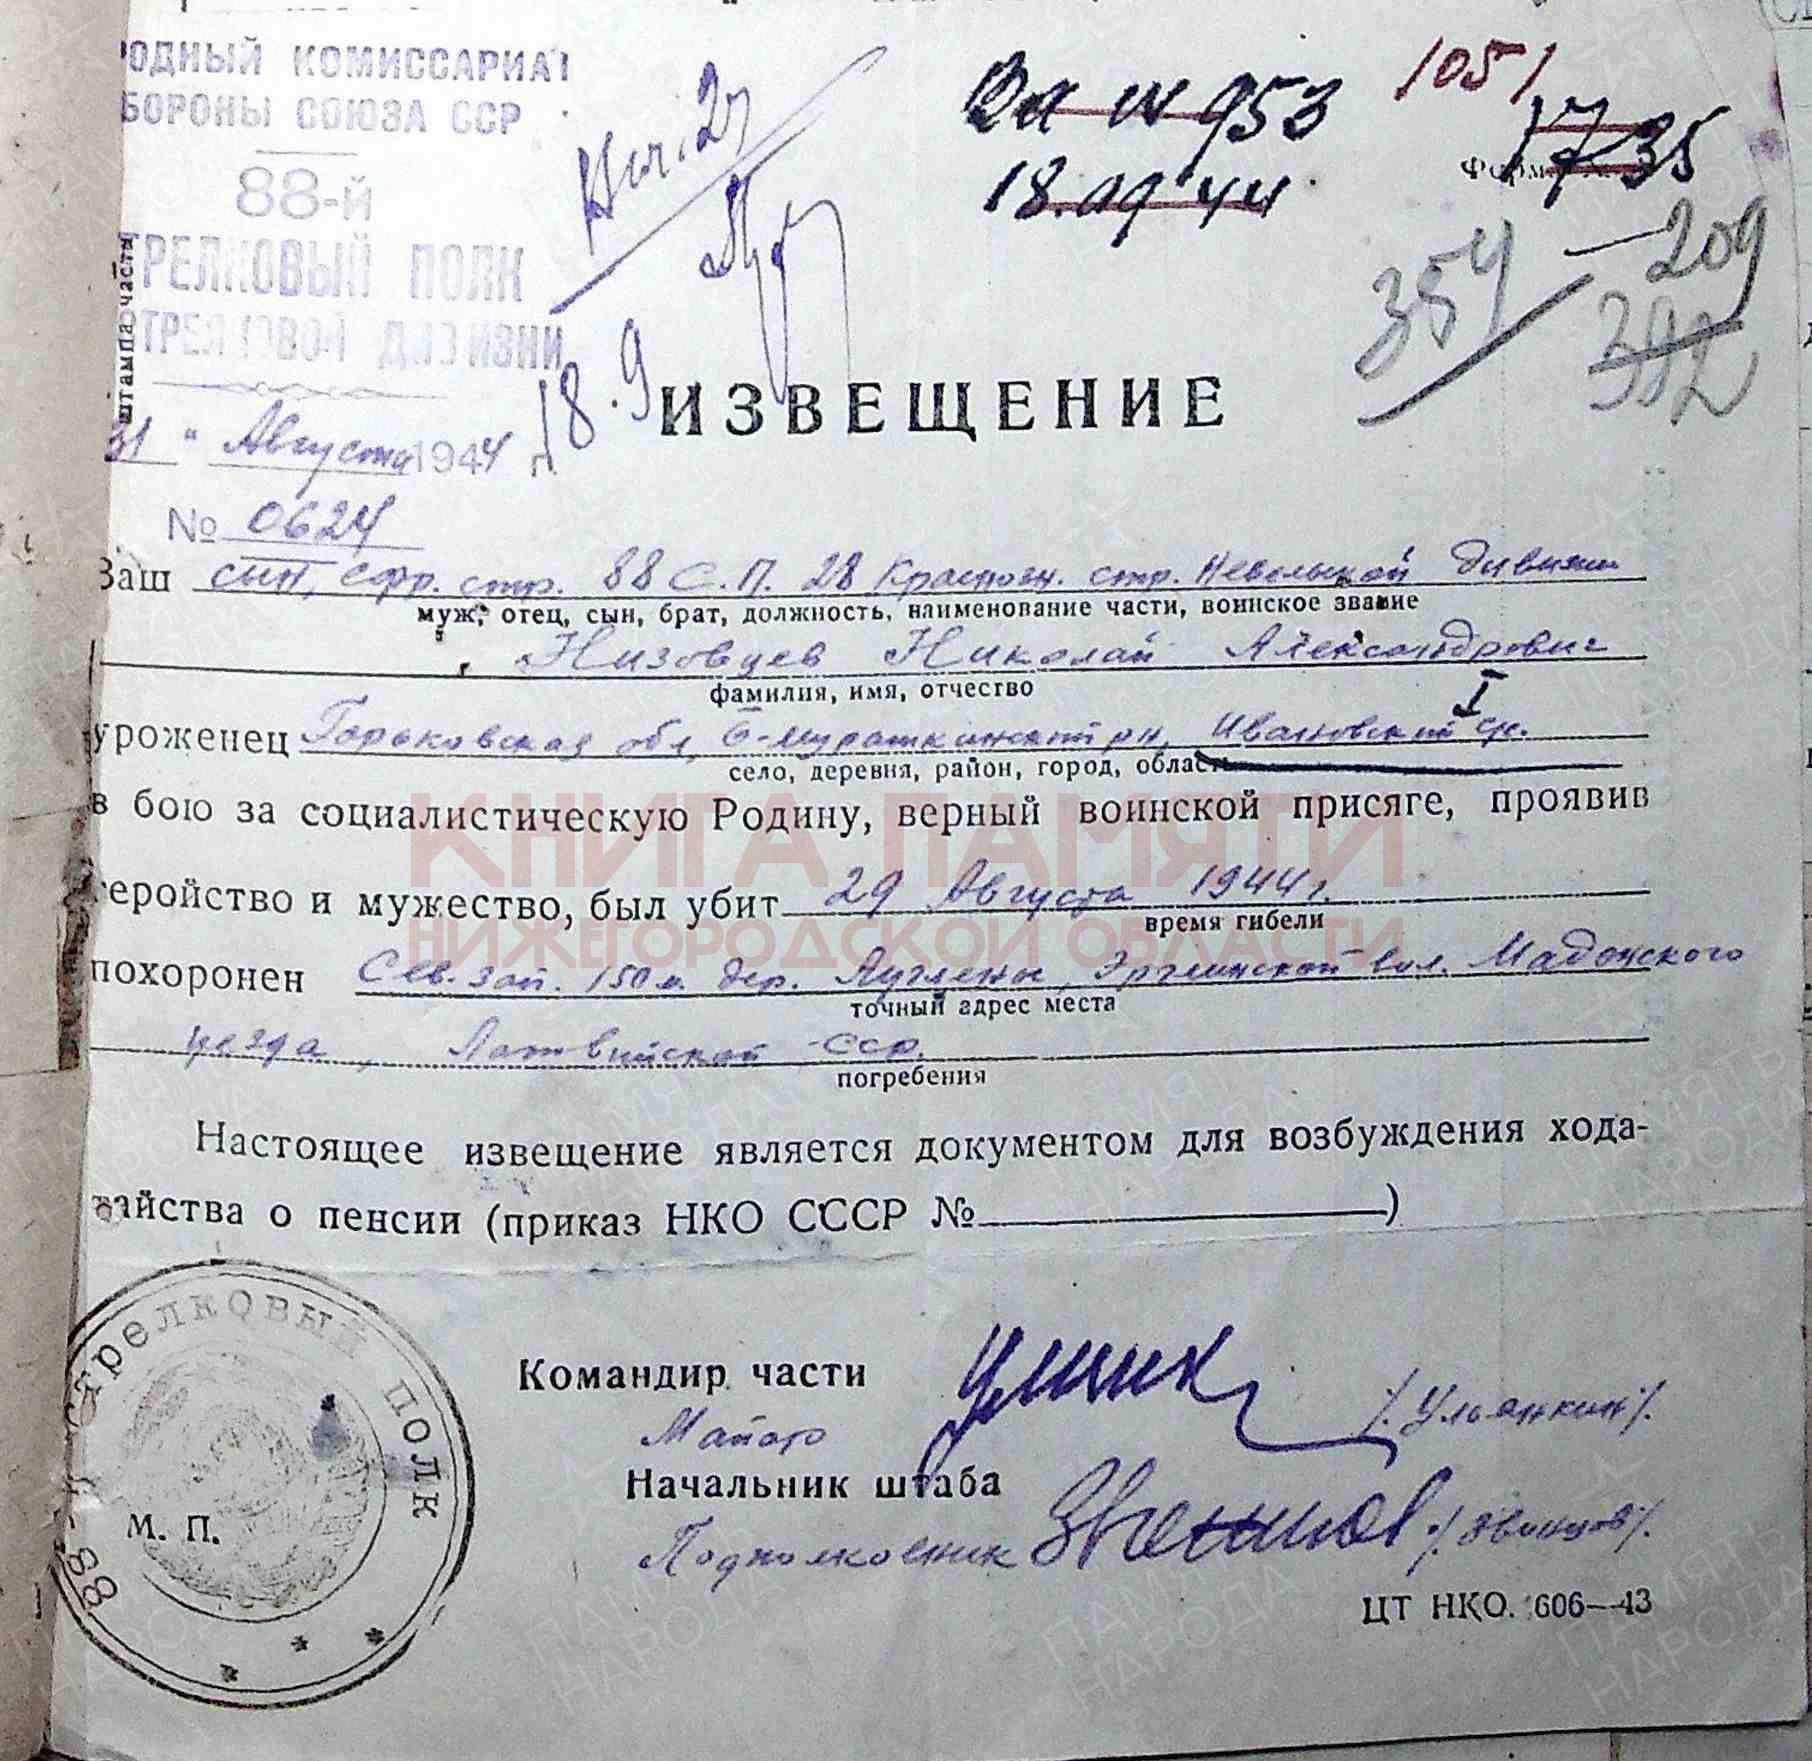 РОДНЫЙ КОМИССАРИАТ
БОРОНЫ СОЮЗА ССР
88-й
ТРЕЛКОВЫЙ ПОЛК
ТРЕЛКОВОЙ ДИВИЗИИ
штампа части
Вх № 953
18.09.44
1051
1735
Форм
354
209
392
18.9
31 " Августа 1944 г.
ИЗВЕЩЕНИЕ
№ 0624
Ваш сын, ефр. стр. 88 С.П. 28 Краснозн. стр. Невельской дивизии
муж, отец, сын, брат, должность, наименование части, воинское звание
Низовцев Николай Александрович
фамилия, имя, отчество
уроженец Горьковская обл, Б-Мурашкинский рн, Ивановский I с/с.
село, деревня, район, город, область
в бою за социалистическую Родину, верный воинской присяге, проявив
геройство и мужество, был убит 29 Августа 1944 г.
время гибели
похоронен Сев. зап. 150 м. дер. Эрглинской вол. Мадонского
точный адрес места
уезда, Латвийской ССР.
погребения
Настоящее извещение является документом для возбуждения хода-
тайства о пенсии (приказ НКО СССР №)
Командир части
Майор /Ульянкин/.
Начальник штаба
Подполковник /Звонцов/.
М. П.
88-й стрелковый полк
ЦТ НКО. 606—43
КНИГА ПАМЯТИ
НИЖЕГОРОДСКОЙ ОБЛАСТИ
ПАМЯТЬ НАРОДА